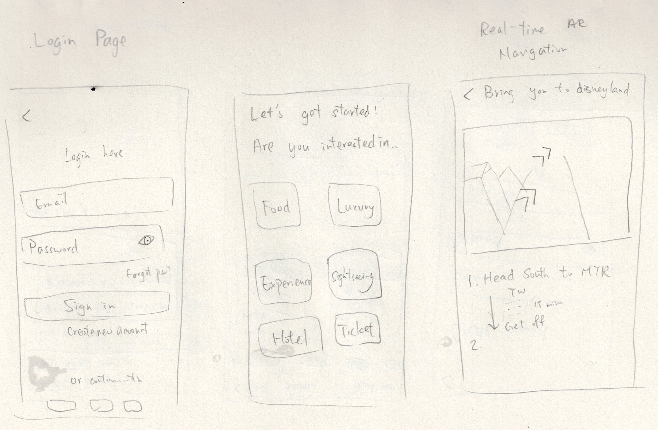 Login Page
<
Login here
Email
Password
Forgot
Sign in
Create new
or
Let's got started!
Are you interested in..
Food
Luxury
Experience
Sightseeing
Hotel
Ticket
Real-time AR
Navigation
< Bring you to disneyland
1. Head South to MTR
TW
15 min
Get off
2